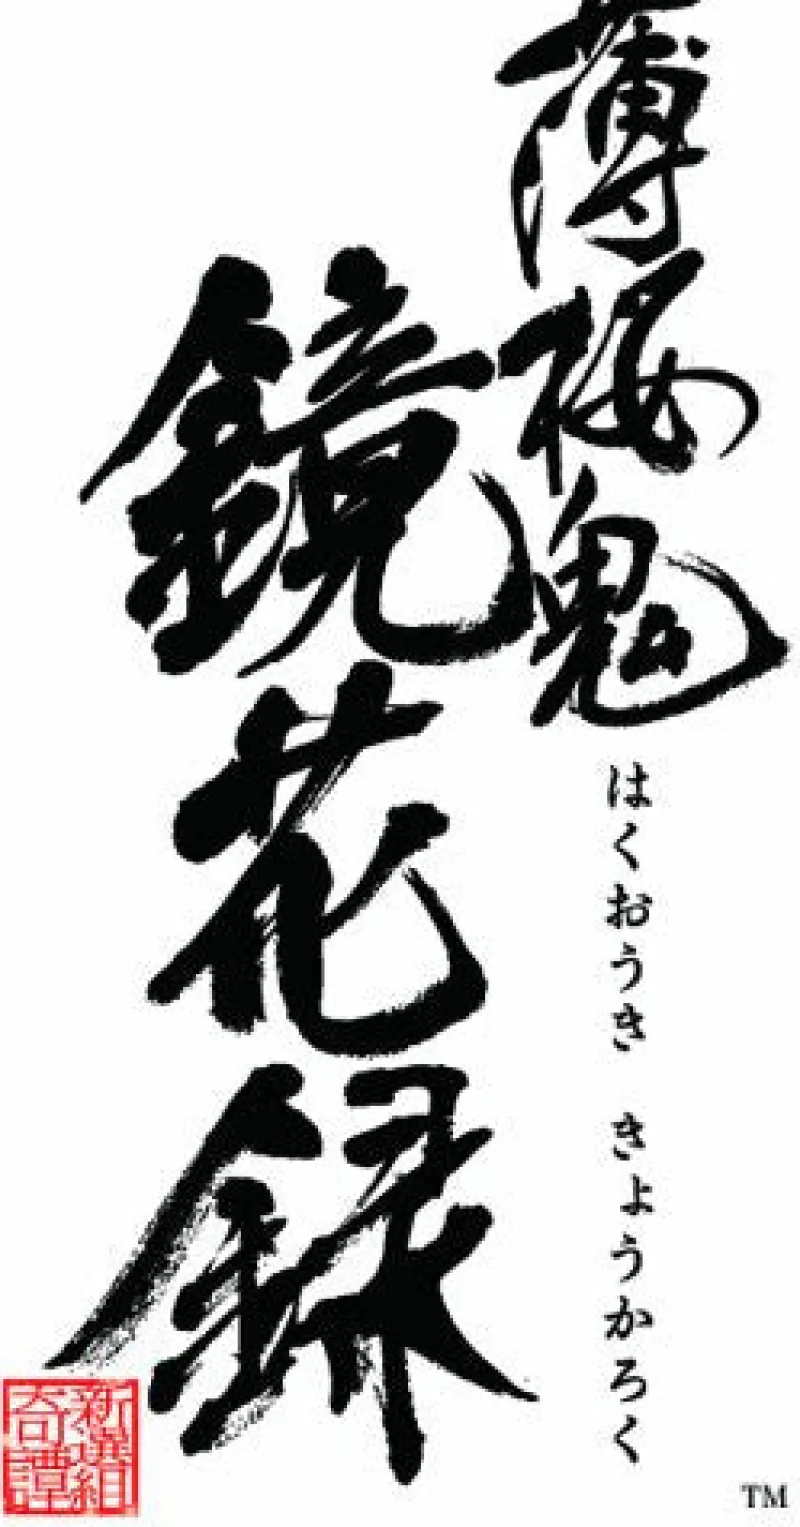 薄桜鬼
はくおうき きょうかろく
鏡花録
新選組
奇譚
TM